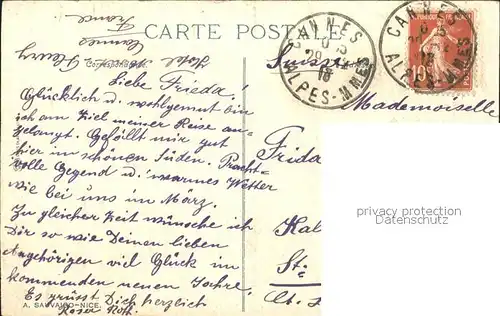 France
Cannes
CARTE POSTALE
Hotel Fleury
Correspondance
CANNES
ALPES-MMES
CANNES
ALPES-MMES
10
Suisse
Mademoiselle
Liebe Frieda!
Glücklich u. wohlgemut bin
ich am Ziel meiner Reise an-
gelangt. Gefällt mir gut
hier im schönen Süden. Pracht-
volle Gegend u. warmes Wetter
wie bei uns im März.
Zu gleicher Zeit wünsche ich
Dir so wie Deinen lieben
Angehörigen viel Glück im
kommenden neuen Jahre.
Es grüsst Dich herzlich
Roser Roth.
Frida
Kal
St:
Ct.
privacy protection
Datenschutz
A. SAUVAIGO-NICE